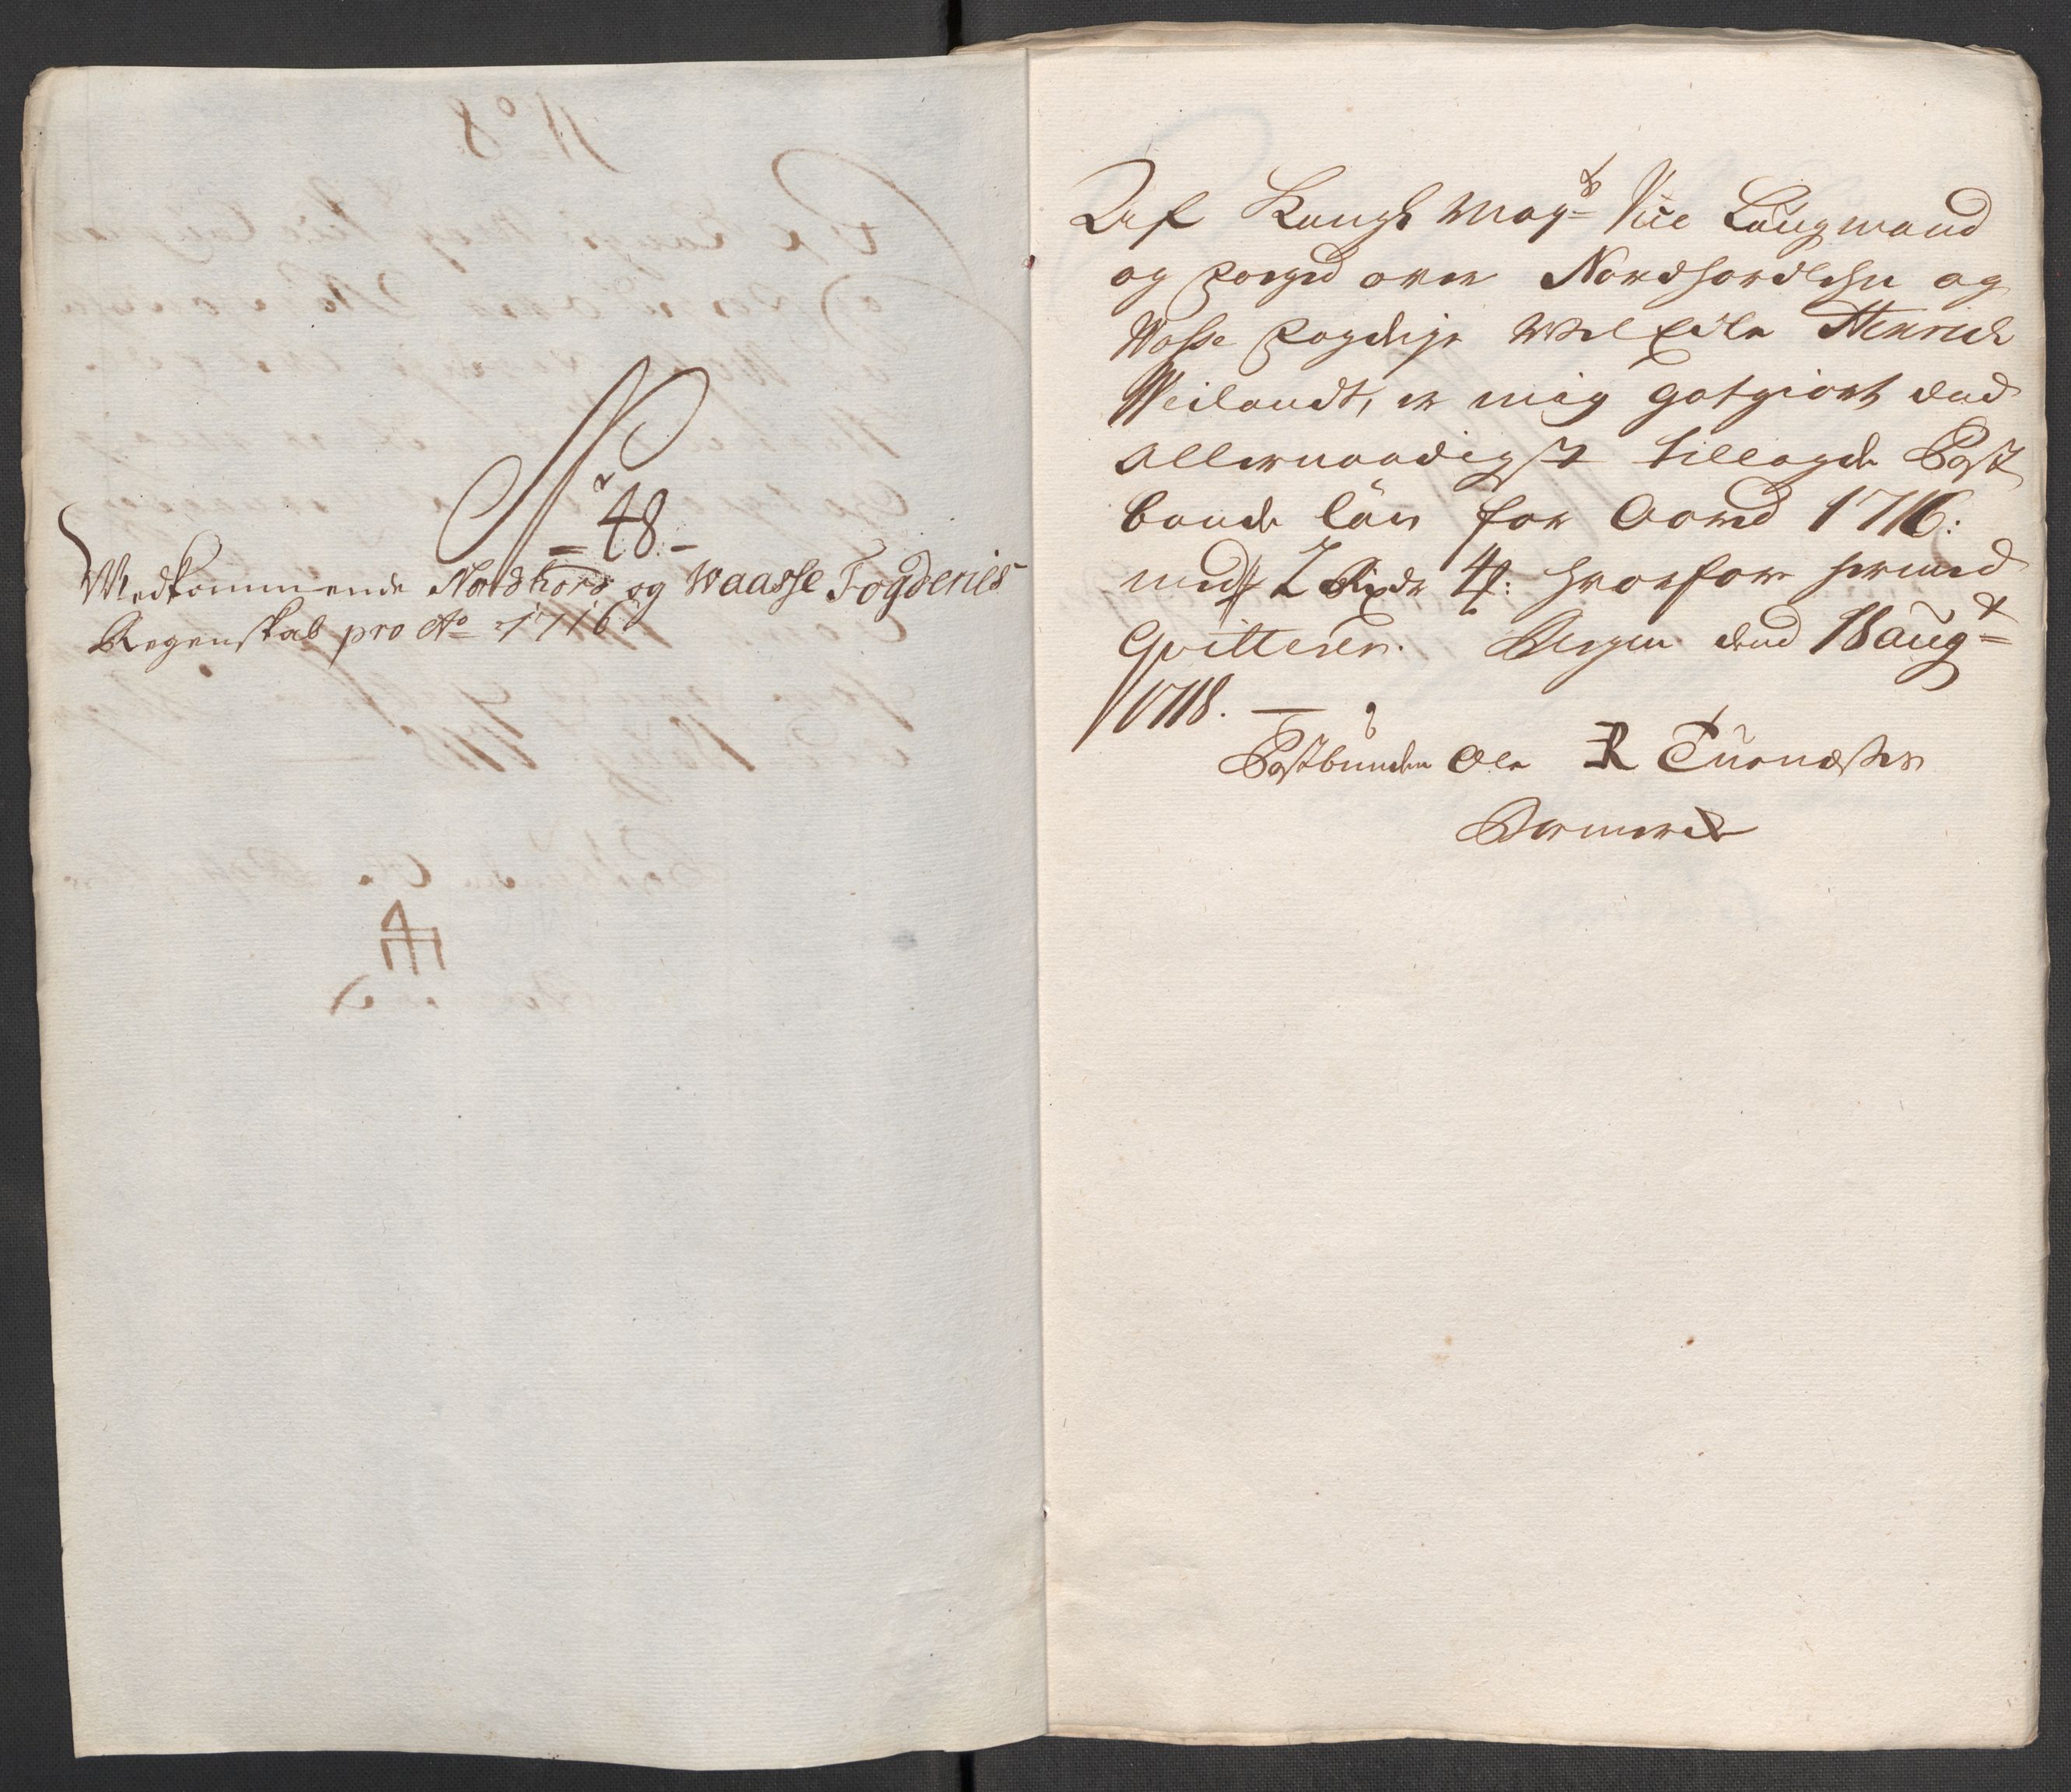 No 48
Vedkommende Nordhors og Waasse Fogderies
Regenskab pro Ao 1716
Af Kongl May:ts Vice Laugmand
og Foged over Nordhordlehn og
Wosse Fogderje Wel Edle Henrich
Weilandt, er mig gotgiort dend
allernaadigst tillagde Post
bonde løn for Aaret 1716:
med 2 Rixdr 4: hvorfor hermed
Qvitterer. Bergen dend 18 augt
1718.
Postbunden Ole R Tuenæsters
Bommerke